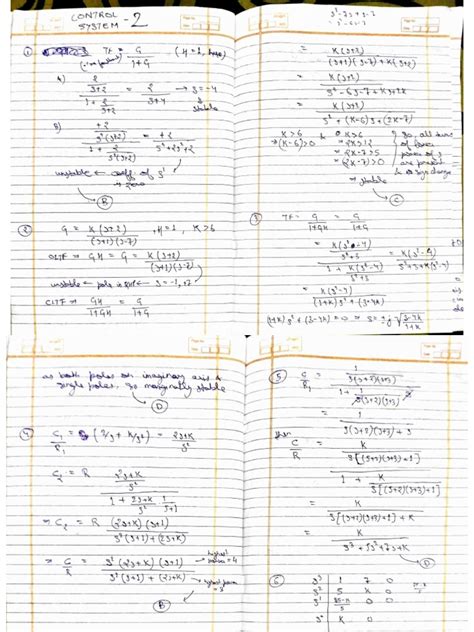 CONTROL SYSTEM - 2
① TF = G / 1+G
a) 2/s+2 / 1 + 2/s+2 = 2/s+4 → s = -4
stable
b) +2/s²(s+2) / 1 + 2/s²(s+2) = +2 / s³+2s²+2
unstable ← coeff. of s¹ → zero
(B)
② G = K(s+2) / (s+1)(s-7) , H=1, K>6
OLTF → GH = G = K(s+2) / (s+1)(s-7)
unstable ← pole is RHP ← s = -1, +7
CLTF → GH / 1+GH = G / 1+G
= K(s+2) / (s+1)(s-7) + K(s+2)
= K(s+2) / s²-6s-7+Ks+2K
= K(s+2) / s²+(K-6)s+(2K-7)
K>6 & K>6 So, all terms
→ (K-6)>0 → 2K>12
→ 2K-7>5
→ 2K-7>0 & no sign change
→ stable
(C)
③ TF = G / 1+G
= K(s²-4)/s²+3 / 1 + K(s²-4)/s²+3 = K(s²-4) / s²+3+K(s²-4)
= K(s²-4) / (1+K)s²+(3-4K)
(1+K)s²+(3-4K)=0 → s = ±j√3-4K/1+K
as both poles on imaginary axis & single poles, so marginally stable
(D)
④ C₁/R₁ = (2/s + K/s²) = 2s+K / s²
C₂ = R 2s+K/s² / 1 + 2s+K/s² · 1/s+1
→ C₂ = R (2s+K)(s+1) / s²(s+1)+(2s+K)
→ C/R = s²(2s+K)(s+1) / s²(s+1)+(2s+K)
highest power = 4
highest power = 3
(B)
⑤ C/R₁ = 1/s(s+2)(s+3) / 1 + 1·s/s(s+2)(s+3)
= 1 / s(s+2)(s+3)+s
then
C/R = K/s[(s+2)(s+3)+1] / 1 + K/s[(s+2)(s+3)+1]
= K / s[(s+2)(s+3)+1]+K
= K / s³+5s²+7s+K
(D)
⑥ s³ 1 7 0
s² 5 K 0
s¹ 35-K/5 0 0
s⁰ K 0